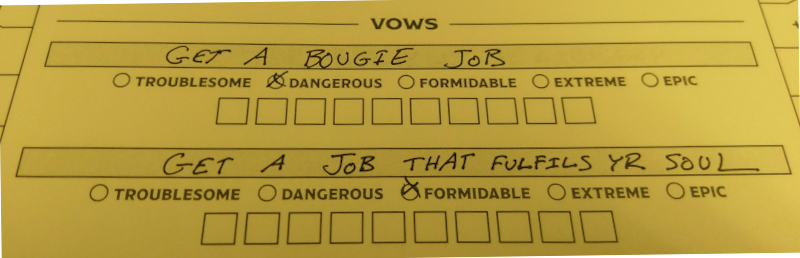 VOWS
GET A BOUGIE JOB
TROUBLESOME DANGEROUS FORMIDABLE EXTREME EPIC
GET A JOB THAT FULFILS YR SOUL
TROUBLESOME DANGEROUS FORMIDABLE EXTREME EPIC